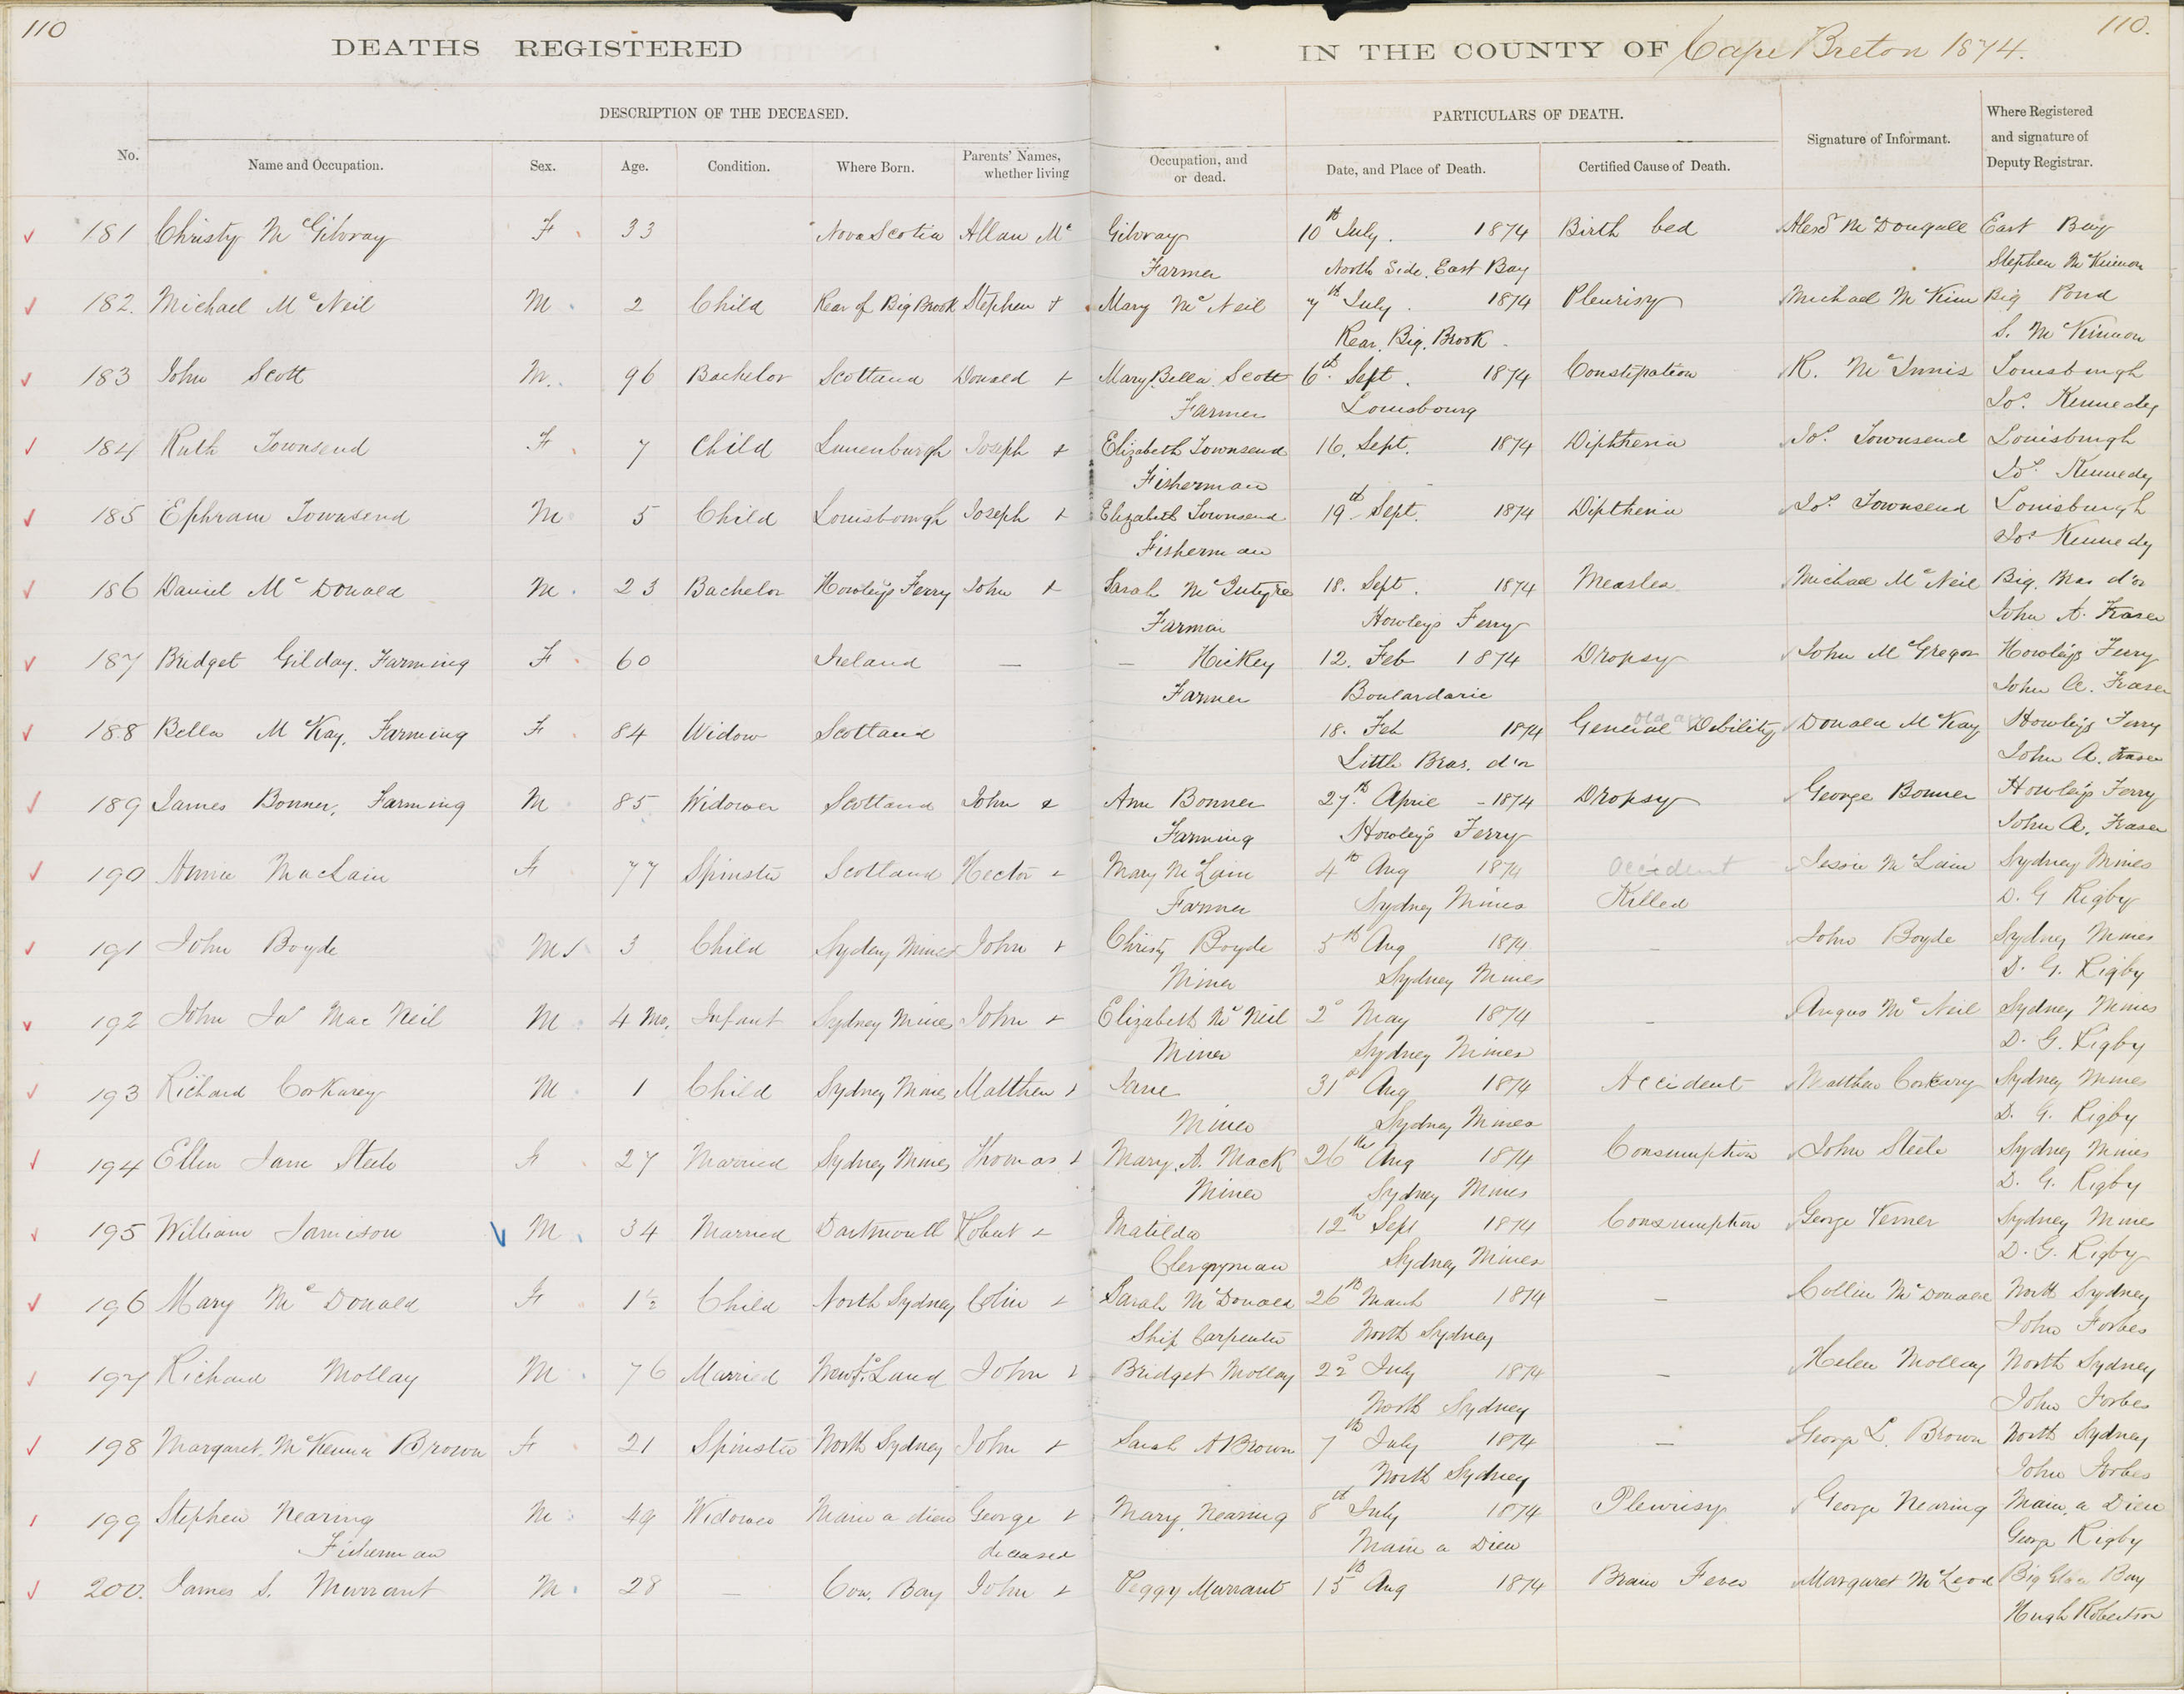 110
110.
DEATHS REGISTERED IN THE COUNTY OF Cape Breton 1874.
DESCRIPTION OF THE DECEASED. PARTICULARS OF DEATH.
No. Name and Occupation. Sex. Age. Condition. Where Born. Parents' Names, whether living Occupation, and or dead. Date, and Place of Death. Certified Cause of Death. Signature of Informant. Where Registered and signature of Deputy Registrar.
181 Christy McGilvray F 33 Nova Scotia Allan Mc Gilvray 10th July. 1874 Birth bed Alexd McDougall East Bay
Farmer North Side, East Bay Stephen McKinnon
182. Michael McNeil M. 2 Child Rear of Big Brook Stephen + Mary McNeil 7th July. 1874 Pleurisy Michael McKinn Big Pond
Rear, Big, Brook S. McKinnon
183 John Scott M. 96 Bachelor Scotland Donald + Mary Bella Scott 6th Sept. 1874 Constipation R. McInnis Louisburgh
Farmer Louisbourg Jos. Kennedy
184 Ruth Townsend F 7 Child Lunenburgh Joseph + Elizabeth Townsend 16. Sept. 1874 Diptheria Jos. Townsend Louisburgh
Fisherman Jos. Kennedy
185 Ephram Townsend M 5 Child Louisbourgh Joseph + Elizabeth Townsend 19th Sept. 1874 Diptheria Jos. Townsend Louisburgh
Fisherman Jos Kennedy
186 Daniel McDonald M. 23 Bachelor Howleys Ferry John + Sarah McIntyre 18. Sept. 1874 Measles Michael McNeil Big, Bras d'or
Farmer Howleys Ferry John A. Fraser
187 Bridget Gilday. Farming F 60 Ireland — — Hickey 12. Feb 1874 Dropsy John McGregor Howleys Ferry
Farmer Boulardarie John A. Fraser
188 Bella McKay, Farming F 84 Widow Scotland 18. Feb 1874 old age General Debility Donald McKay Howleys Ferry
Little Bras. d'or John A. Fraser
189 James Bonner, Farming M 85 Widower Scotland John & Ann Bonner 27th April 1874 Dropsy George Bonner Howleys Ferry
Farming Howleys Ferry John A. Fraser
190 Annie MacLain F 77 Spinster Scotland Hector + Mary McLain 4th Aug 1874 accident Jessie McLain Sydney Mines
Farmer Sydney Mines Killed D. G Rigby
191 John Boyde M 3 Child Sydeny Mines John + Christy Boyde 5th Aug 1874 — John Boyde Sydney Mines
Miner Sydney Mines D. G. Rigby
192 John Jas MacNeil M 4 Mo. Infant Sydney Mines John + Elizabeth McNeil 2d May 1874 — Angus McNeil Sydney Mines
Miner Sydney Mines D. G. Rigby
193 Richard Corkarey M 1 Child Sydney Mines Matthew + Jane 31st Aug 1874 Accident Matthew Corkary Sydney Mines
Miner Sydney Mines D. G. Rigby
194 Ellen Jane Steele F 27 Married Sydney Mines Thomas + Mary. A. Mack 26th Aug 1874 Consumption John Steele Sydney Mines
Miner Sydney Mines D. G. Rigby
195 William Jamieson M 34 Married Dartmouth Robert + Matilda 12th Sept 1874 Consumption George Verner Sydney Mines
Clergyman Sydney Mines D. G. Rigby
196 Mary McDonald F 1½ Child North Sydney Colin + Sarah McDonald 26th March 1874 — Collin McDonald North Sydney
Ship Carpenter North Sydney John Forbes
197 Richard Mollay M 76 Married Newf.Land John + Bridget Mollay 22d July 1874 — Helen Mollay North Sydney
North Sydney John Forbes
198 Margaret McKenna Brown F 21 Spinster North Sydney John + Sarah A Brown 7th July 1874 — George L. Brown North Sydney
North Sydney John Forbes
199 Stephen Nearing M 49 Widower Main a dieu George + Mary Nearing 8th July 1874 Pleurisy George Nearing Main, a Dieu
Fisherman deceased Main a Dieu George Rigby
200. James S. Murrant M. 28 — Cow. Bay John + Peggy Murrant 15th Aug 1874 Brain Fever Margaret McLeod Big Bay
Hugh Robertson